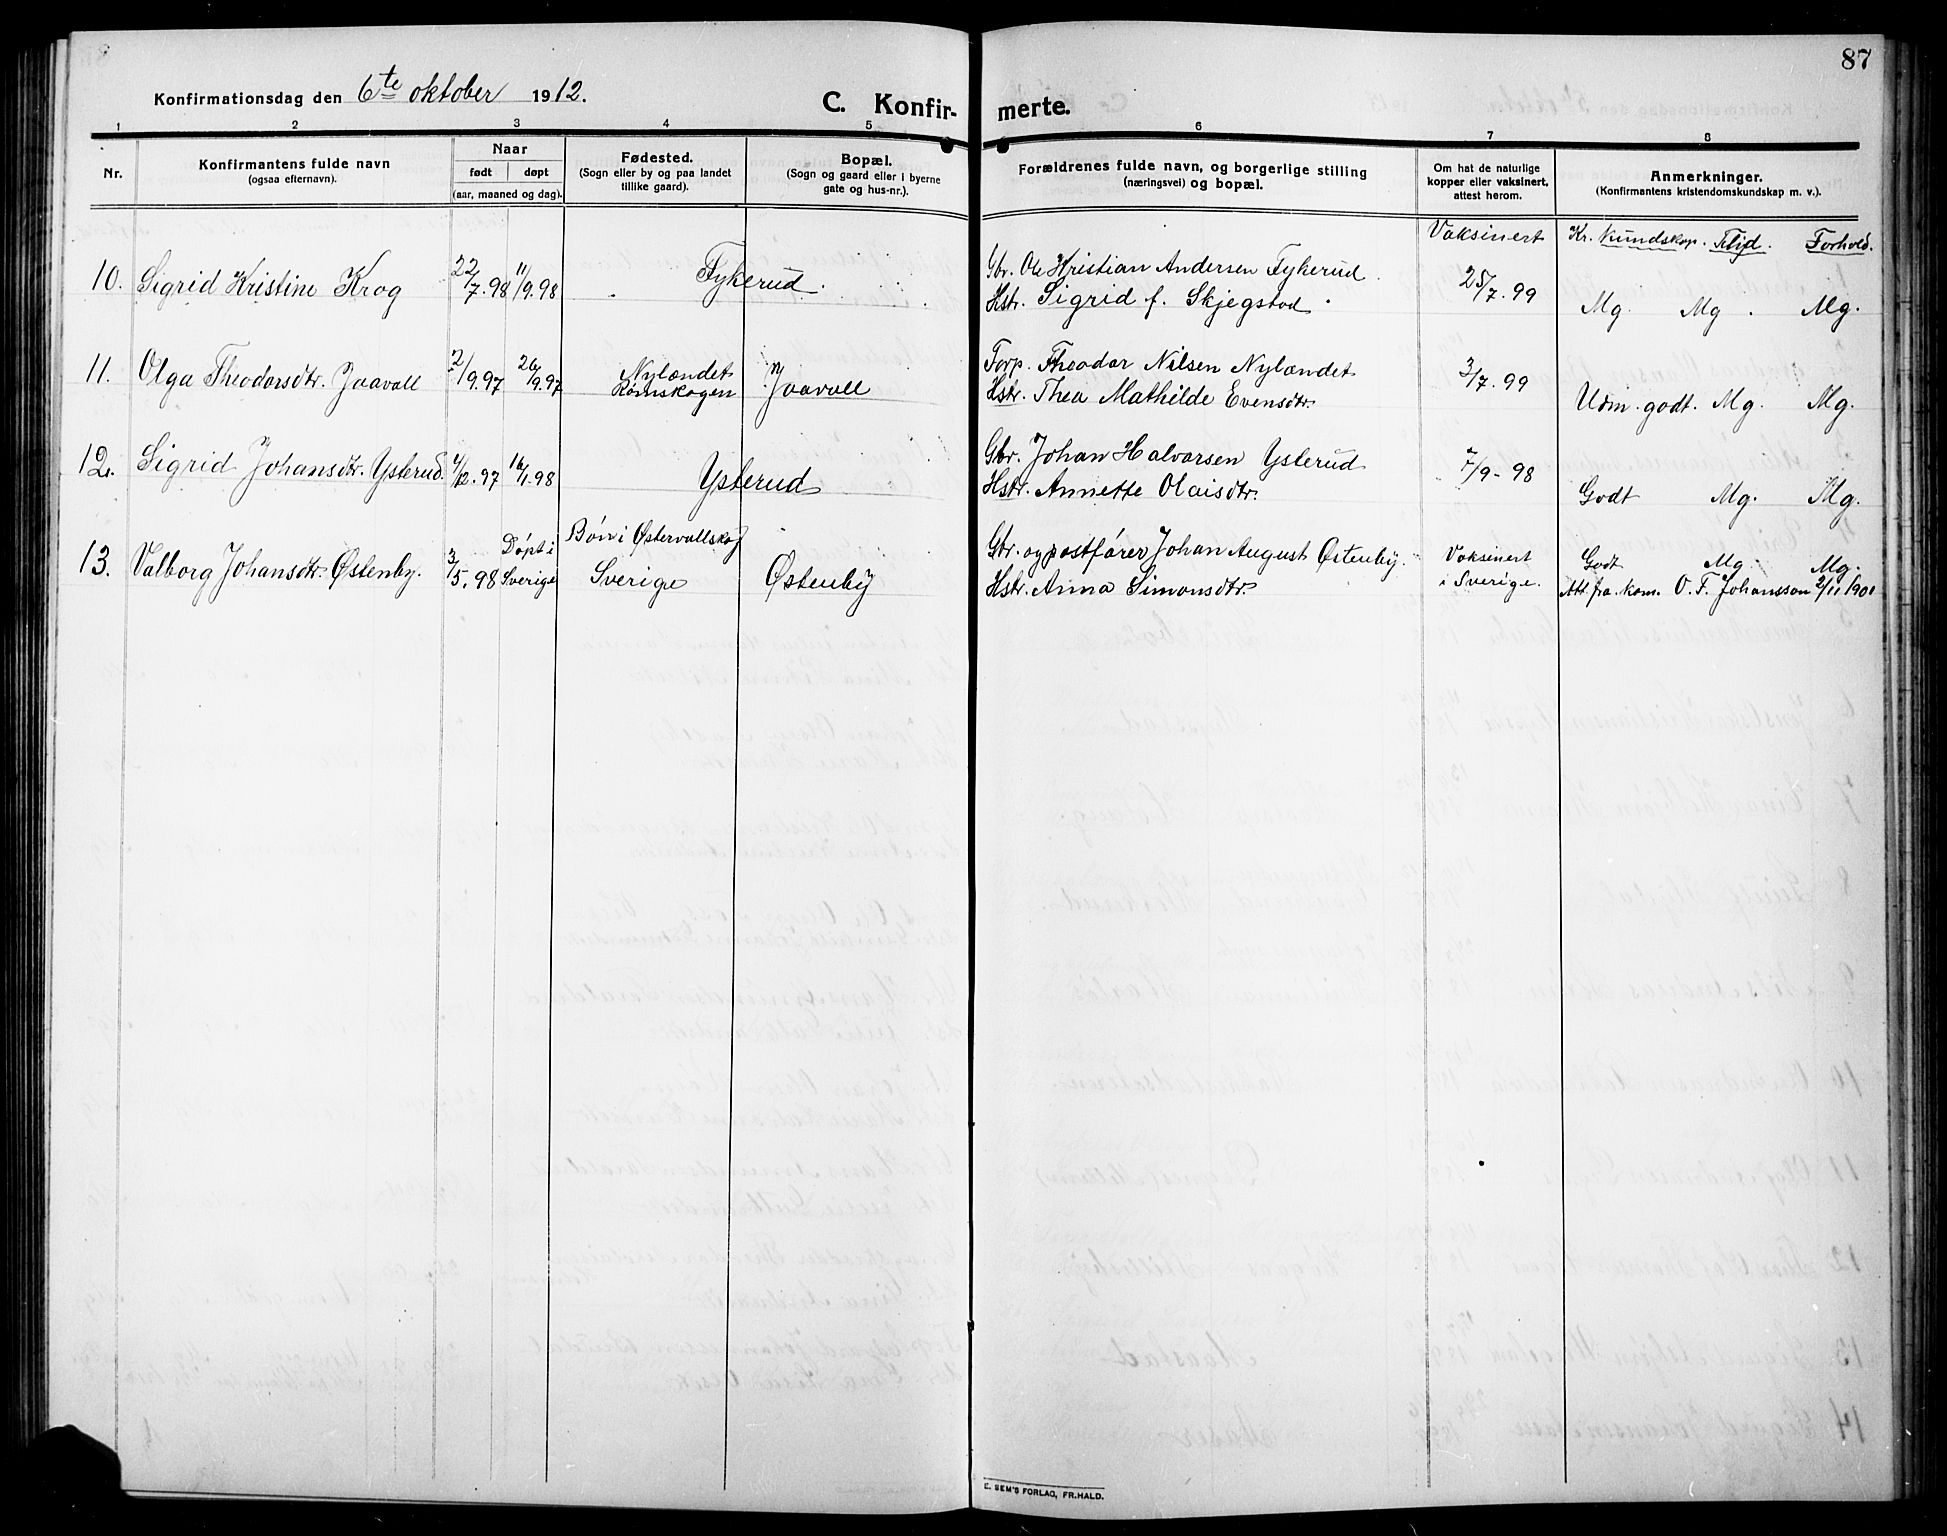 87
Konfirmationsdag den 6te oktober 1912.
C. Konfirmerte.
1 2 3 4 5 6 7 8
Nr.
Konfirmantens fulde navn
(ogsaa efternavn).
Naar
født døpt
(aar, maaned og dag).
Fødested.
(Sogn eller by og paa landet
tillike gaard).
Bopæl.
(Sogn og gaard eller i byerne
gate og hus-nr.).
Forældrenes fulde navn, og borgerlige stilling
(næringsvei) og bopæl.
Om hat de naturlige
kopper eller vaksinert,
attest herom.
Anmerkninger.
(Konfirmantens kristendomskundskap m. v.).
Vaksinert Kr. Kundskap. Flid. Forhold.
10. Sigrid Kristine Krog 22/7.98 11/9.98 Fykerud.
Gbr. Ole Kristian Andersen Fykerud.
Hstr. Sigrid f. Skjegstad.
25/7.99 Mg. Mg. Mg.
11. Olga Theodorsdtr. Jaavall 2/9.97 26/9.97 Nylændet
Rømskogen Jaavall
Torp. Theodor Nilsen Nylændet
Hstr. Thea Mathilde Evensdtr.
3/7.99 Udm. godt. Mg. Mg.
12. Sigrid Johansdtr. Ysterud. /12.97 16/1.98 Ysterud
Gbr. Johan Halvorsen Ysterud
Hstr. Annette Olaisdtr.
7/9-98 Godt Mg. Mg.
13. Valborg Johansdtr. Østenby. 3/5.98 Døpt i
Sverige Bön i Østervallskog
Sverige Østenby
Gbr. og postfører Johan August Østenby.
Hstr. Anna Simonsdtr.
Vaksinert
i Sverige.
Godt Mg. Mg.
Att. fra kom. O. F. Johansson 2/11 1901
E. SEM'S FORLAG, FR.HALD.